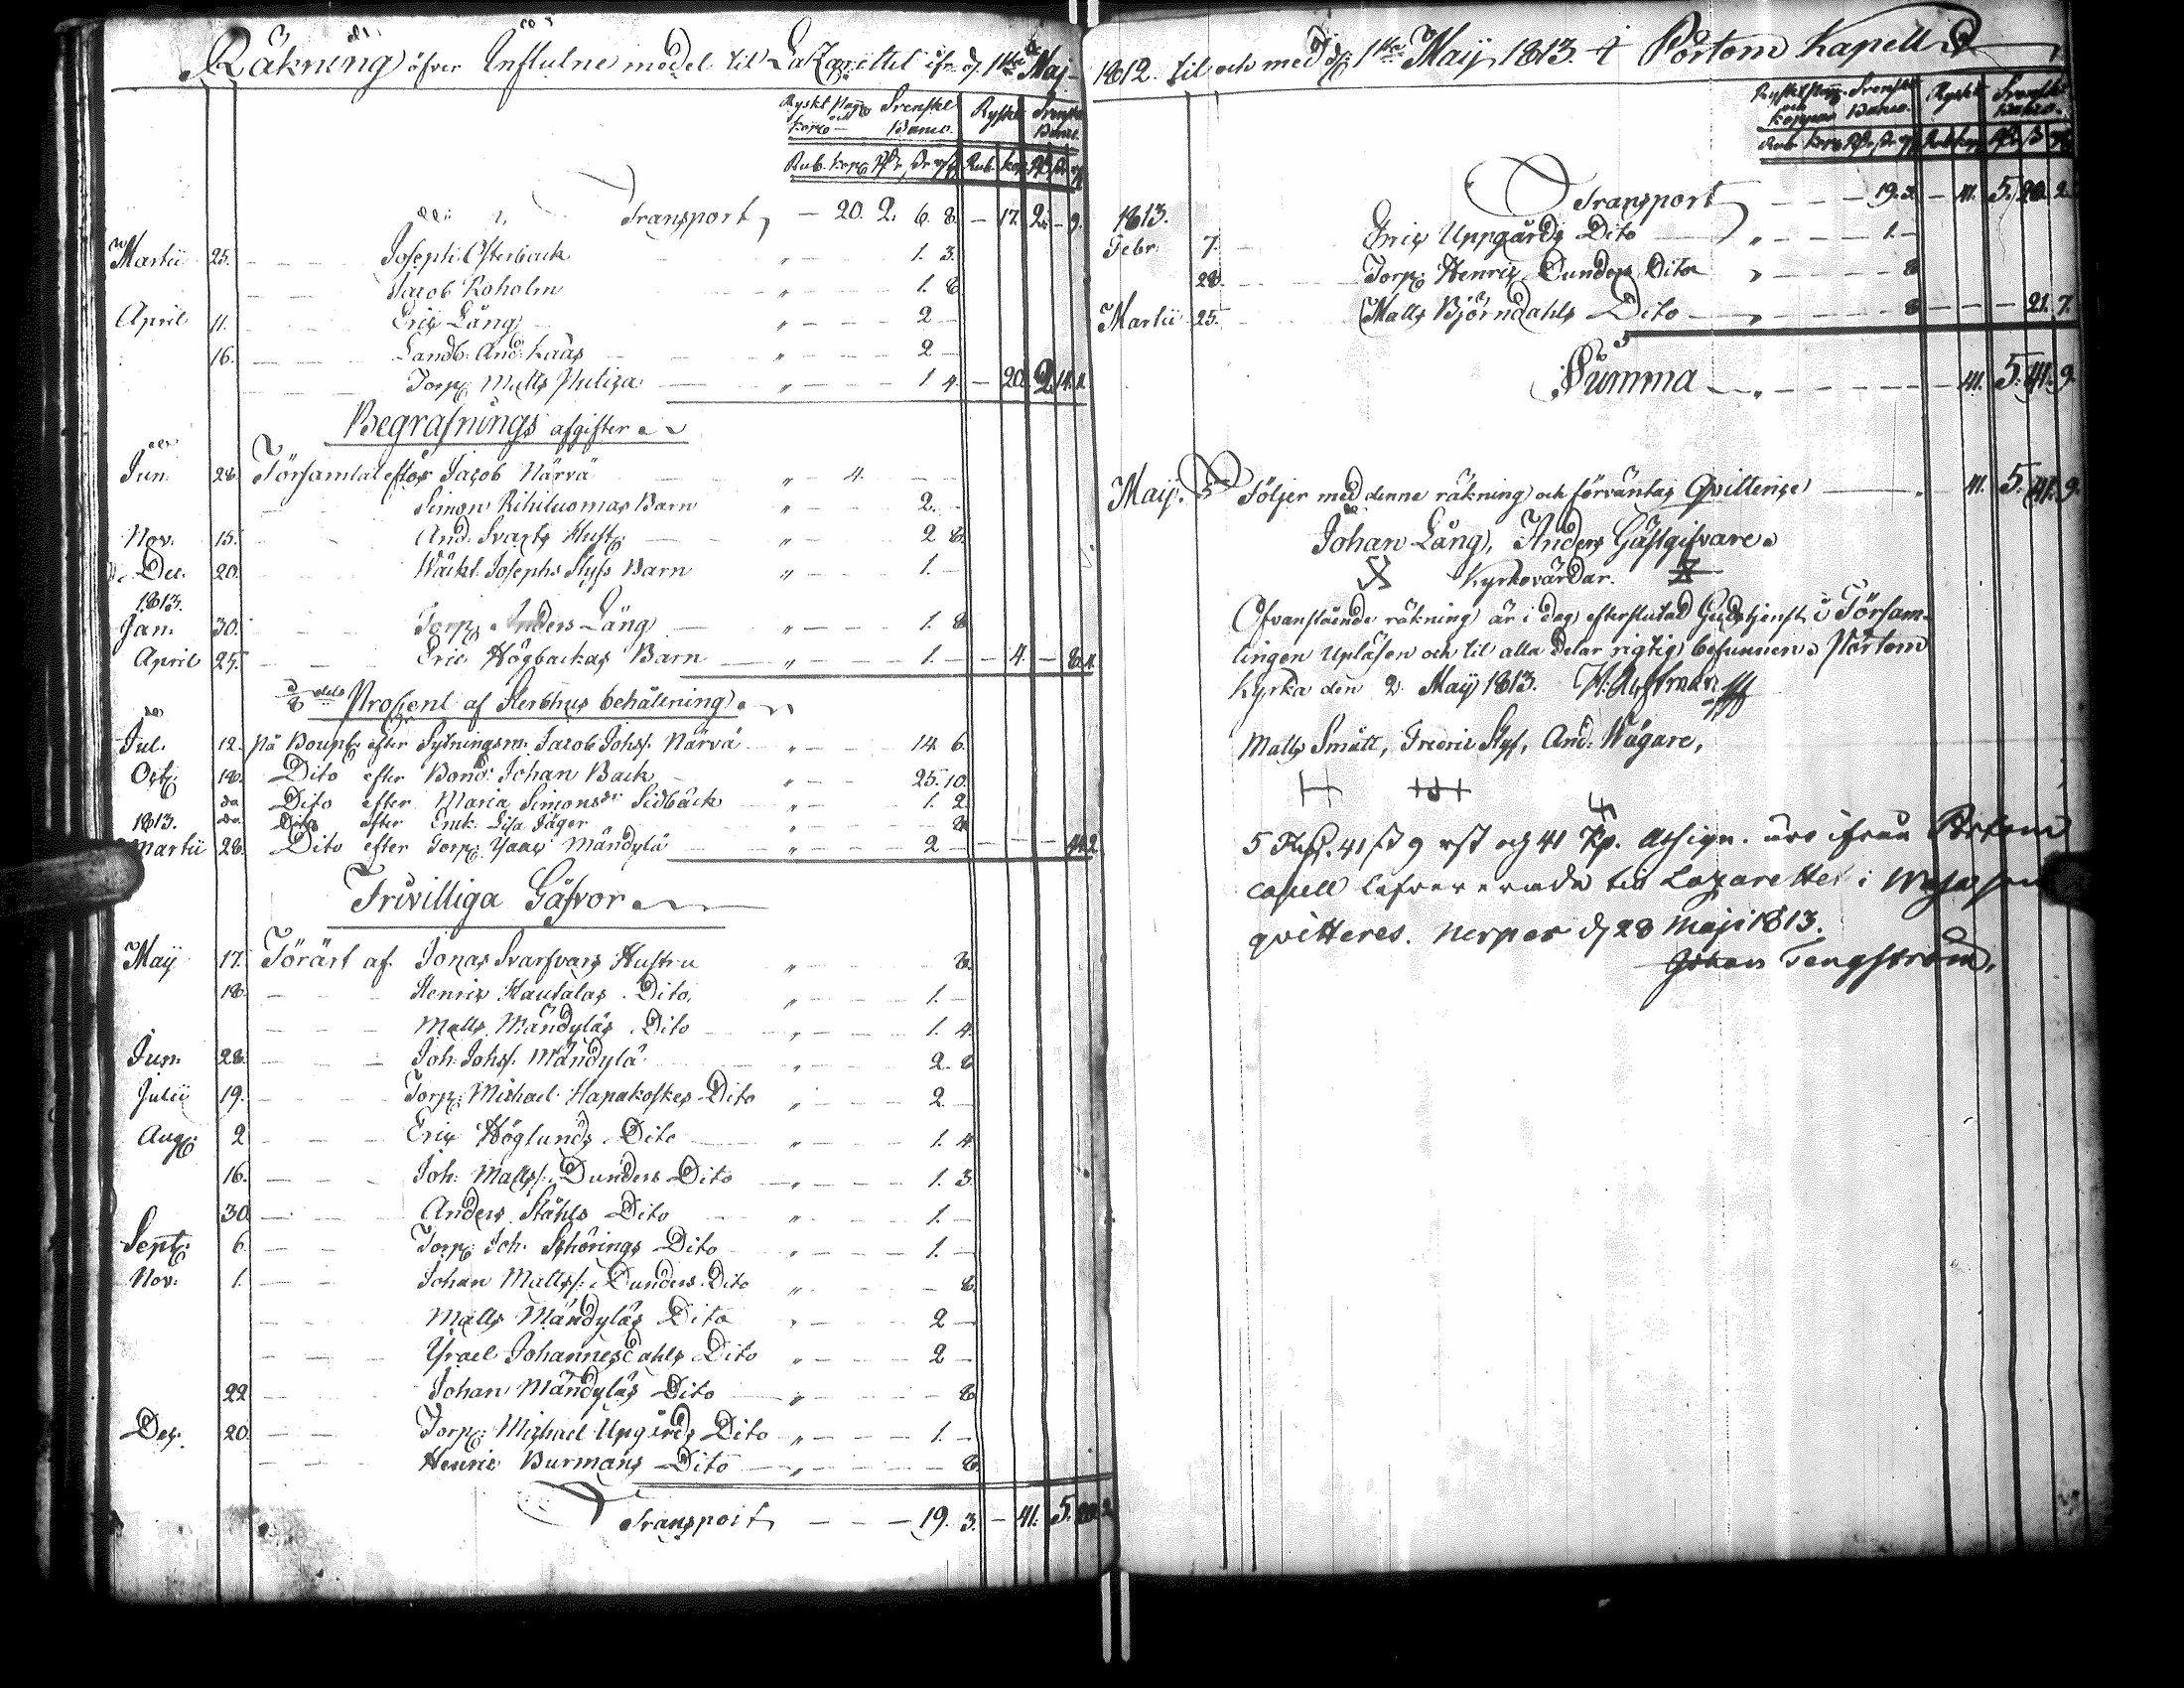 Räkning öfver Influtne medel til Lazarettet ifr. d. 1ste Maj
Ryskt Papp och Kopp Svenskt Banco. Ryskt Svenskt Banco.
Rub. Kop. Rdr. sk. rst. Rub. Kop. Rdr. sk. rst.
Transport, — 20. 2. 6. 8. — 17. 2. — 9.
Martii 25. Joseph Österback „ 1. 3.
Jacob Roholm „ 1. 8.
April 11. Eric Lång „ 2 —
16. Landb: And: Kaas „ 2 —
Torp: Matts „ 1 4. — 20. 2. 14.
Begrafnings afgifter
Jun. 28. Församlat efter Jacob Närvä „ 4. —
Simon Rihiluomas Barn „ 2. —
Nov. 15. And. Svarts Hust: „ 2 8.
Dec. 20. Josephs Slyfs Barn „ 1. —
1813.
Jan. 30. Torp: Anders Lång „ 1. 8
April 25. Eric Högbackas Barn „ 1. — — 4. — 8.
1/8 dels Procent af Sterbhus behållning
Jul. 12. på Bouptg: efter Sytningsm: Jacob Johss. Närvä „ 14. 6.
Oct: 18. Dito efter Bond: Johan Back „ 25. 10.
do Dito efter Maria Simonsdr Sidbäck „ 1. 2.
1813. do. Dito efter Enck: Lisa Jäger „ 8.
Martii 28. Dito efter Torp: Ysaac Mändylä „ 2 — — — — 44. 2.
Frivilliga Gåfvor
Maij 17. Förärt af Jonas Svarfvars Hustru „ 8.
18. Henric Hautalas Dito, „ 1. —
Matts Mändyläs Dito „ 1. 4.
Jun. 28. Joh: Johss. Mändylä „ 2. 8
Julii 19. Torp: Michael Hapakoskes Dito „ 2. —
Aug: 2 Eric Höglunds Dito „ 1. 4.
16. Joh: Mattss: Dunders Dito „ 1. 3.
30 Anders Ståhls Dito „ 1. —
Sept: 6. Torp: Joh: Schörings Dito „ 1. —
Nov: 1. Johan Mattss: Dunders Dito „ 8.
Matts Mändyläs Dito „ 2 —
Ysrael Johannesdahls Dito „ 2 —
22 Johan Mändyläs Dito „ 8.
Dec. 20. Torp: Michael Upgårds Dito „ 1. —
Henric Burmans Dito „ 8.
Transport, — — — 19. 3. — 41. 5. 20. 2
1812. til och med d. 1ste Maij 1813. i Pörtom Kapell
Ryskt Papp. och Koppar Svenskt Banco. Ryskt Svenskt Banco.
Rub. Kop. Rdr. sk. rst. Rub. Kop. Rdr. sk. rst.
Transport — — — 19. 3. — 41. 5. 20. 2.
1813.
Febr: 7. Eric Uppgårds Dito „ 1. —
28. Torp: Henric Dunders Dito „ 8
Martii 25. Matts Björndahls Dito „ 8 — — — 21. 7.
Summa — „ — 41. 5. 41. 9.
Maij. 5 Följer med denne räkning och förväntas Qvittenge — 41. 5. 41. 9.
Johan Lång, Anders Gästgifvare
Kyrkovärdar.
Ofvanstående räkning är i dag efter slutad Gudstjenst i Församlingen
Upläsen och til alla delar rigtig befunnen. Pörtom
Kyrka den 2. Maij 1813.
Matts Smått, Fredric Slyf, And: Wägare,
5 Rd. 41 sk 9 rst och 41 Kp. Assign. äro ifrån Pörtom
capell lefvererade till Lazarettet i Wasa som
qvitteres. Nerpes d 28 Maji 1813.
Johan Tengström.